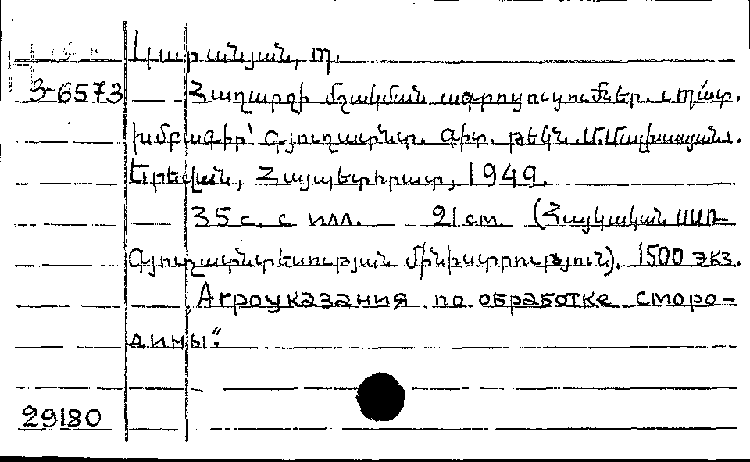 Նարանյան, Պ.
3-6573 Հաղարջի մշակման ագրոցուցումներ. Պատ.
խմբագիր՝ գյուղատնտ. գիտ. թեկն. Մ.
Երեվան, Հայպետհրատ, 1949.
35 с. с илл. 21 см. (Հայկական ՍՍՌ
Գյուղատնտեսության մինիստրություն). 1500 экз.
Агроуказания по обработке сморо-
дины".
29180